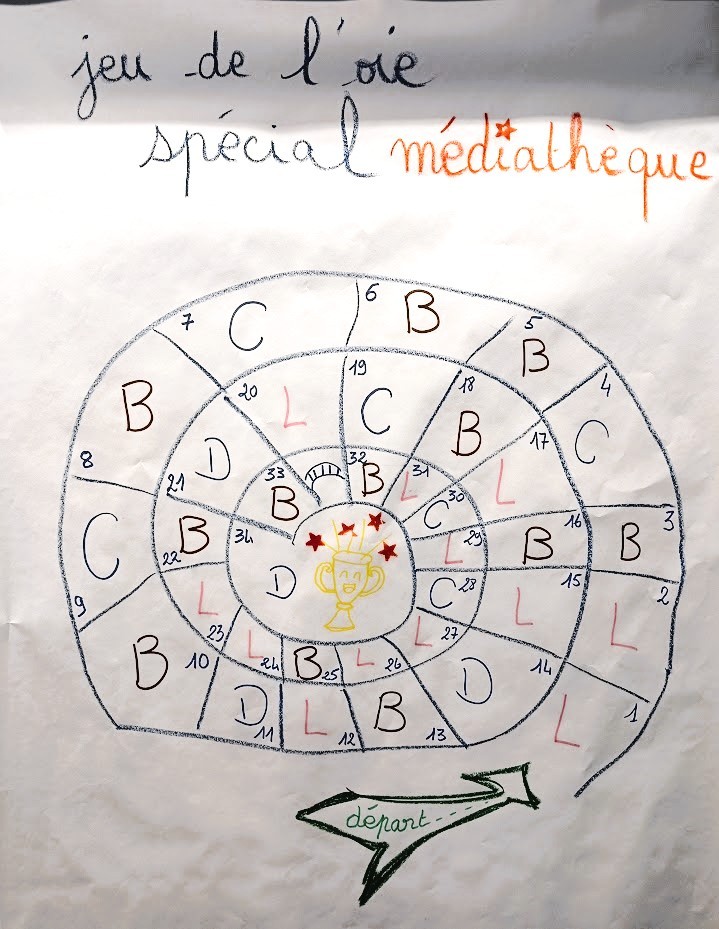 jeu de l'oie
spécial médiathèque
L 1
L 2
B 3
C 4
B 5
B 6
C 7
B 8
C 9
B 10
D 11
L 12
B 13
D 14
L 15
B 16
L 17
B 18
C 19
L 20
D 21
B 22
L 23
L 24
B 25
L 26
L 27
C 28
L 29
C 30
L 31
B 32
33
B 34
D
départ